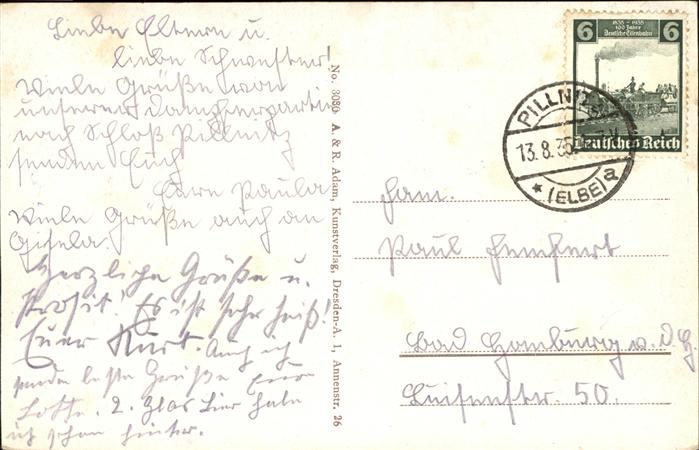 Liebe Eltern u.
liebe Schwester!
Viele Grüße von
unserer Dampferpartie
nach Schloß Pillnitz
senden Euch
Eure Paula
Viele Grüße auch an
Gisela.
Herzliche Grüße u.
Prosit! Es ist sehr heiß!
Euer Kurt. Auch ich
sende beste Grüße Eure
Lotte. 2. Glas Bier habe
ich schon hinter.
No. 3080 A. & R. Adam, Kunstverlag, Dresden-A. 1, Annenstr. 26
6 1835-1935 6
100 Jahre
Deutsche Eisenbahn
Deutsches Reich
PILLNITZ
13.8.35
* (ELBE) a
Fam.
Paul
Bad Homburg v. d. H.
Luisenstr. 50.